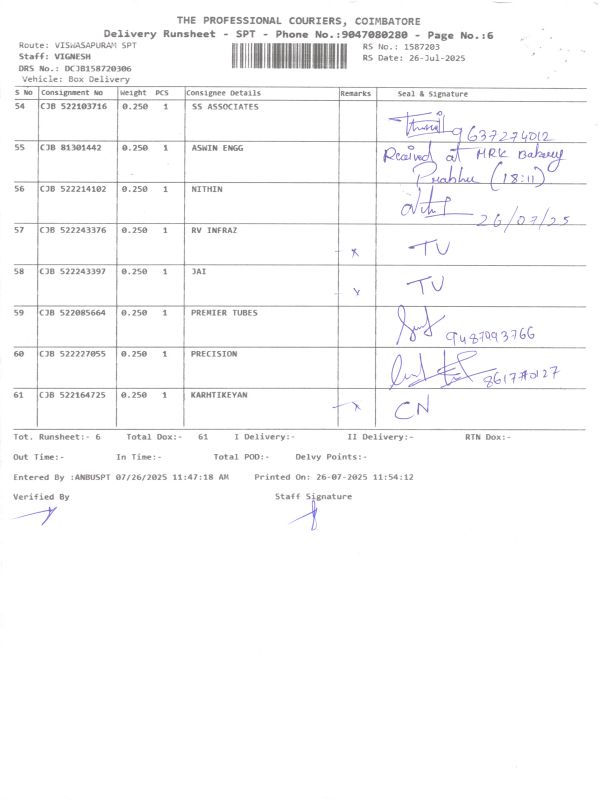 THE PROFESSIONAL COURIERS, COIMBATORE
Delivery Runsheet - SPT - Phone No.:9047080280 - Page No.:6
Route: VISWASAPURAM SPT RS No.: 1587203
Staff: VIGNESH RS Date: 26-Jul-2025
DRS No.: DCJB158720306
Vehicle: Box Delivery
S No Consignment No Weight PCS Consignee Details Remarks Seal & Signature
54 CJB 522103716 0.250 1 SS ASSOCIATES
9637274012
55 CJB 81301442 0.250 1 ASWIN ENGG Received at MRK Bakery
Prabhu (18:11)
56 CJB 522214102 0.250 1 NITHIN
26/07/25
57 CJB 522243376 0.250 1 RV INFRAZ
x TV
58 CJB 522243397 0.250 1 JAI
TV
59 CJB 522085664 0.250 1 PREMIER TUBES
9487093766
60 CJB 522227055 0.250 1 PRECISION
61 CJB 522164725 0.250 1 KARHTIKEYAN
x CN
Tot. Runsheet:- 6 Total Dox:- 61 I Delivery:- II Delivery:- RTN Dox:-
Out Time:- In Time:- Total POD:- Delvy Points:-
Entered By :ANBUSPT 07/26/2025 11:47:18 AM Printed On: 26-07-2025 11:54:12
Verified By Staff Signature